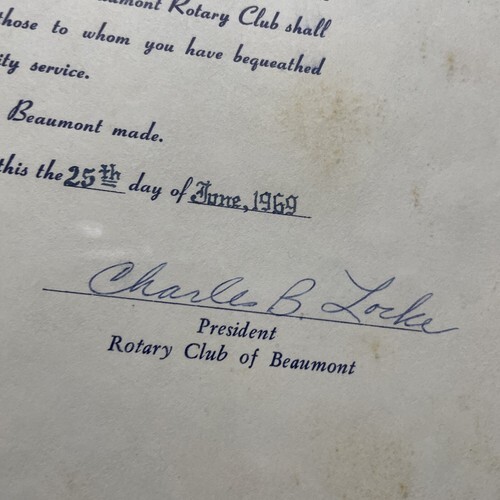 Rotary Club shall
those to whom you have bequeathed
ity service.
Beaumont made.
this the 25th day of June, 1969
Charles B. Locke
President
Rotary Club of Beaumont